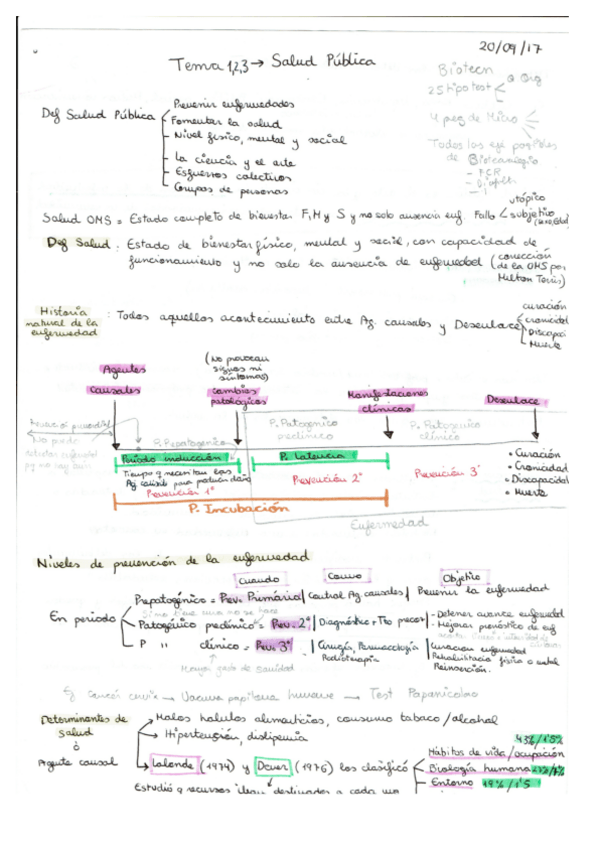 20/09/17
Tema 1,2,3 → Salud Pública
Biotecn
25 tipo test
Org
4 preg de Micro
Todos los eje posibles
de Biotecnología
- PCR
Def Salud Pública
Prevenir enfermedades
Fomentar la salud
Nivel físico, mental y social
- La ciencia y el arte
- Esfuerzos colectivos
Grupos de personas
Salud OMS = Estado completo de bienestar F, M y S y no solo ausencia enf. Fallo
utópico
subjetivo
Def Salud: Estado de bienestar físico, mental y social, con capacidad de
funcionamiento y no solo la ausencia de enfermedad (corrección
de la OMS por
Milton Terris)
Historia
natural de la
enfermedad
: Todos aquellos acontecimiento entre Ag. causales y Desenlace
curación
cronicidad
Discapaci
Muerte
Agentes
causales
(No provocan
signos ni
síntomas)
cambios
patológicos
Manifestaciones
clínicas
Desenlace
No puedo
pq no hay
P. Prepatogenico
P. Patogenico
preclínico
P. Patogenico
clínico
Periodo inducción
P. Latencia
Tiempo q necesitan los
Ag causal para producir daño
Prevención 1º
Prevención 2º
Prevención 3º
P. Incubación
• Curación
• Cronicidad
• Discapacidad
• Muerte
Enfermedad
Niveles de prevención de la enfermedad
Cuando
Como
Objetivo
En periodo
Prepatogénico = Prev. Primaria | Control Ag causales | Prevenir la enfermedad
Patogénico preclínico = Prev. 2º | Diagnóstico + Tto precoz
- Detener avance enfermedad
- Mejorar pronóstico de enf
P " clínico = Prev. 3º | Cirugía, Farmacología
Radioterapia
Curación enfermedad
Rehabilitación física o mental
Reinserción.
Mayor gasto de sanidad
Ej Cancer cervix → Vacuna papiloma humano → Test Papanicolau
Determinantes de
salud
ò
Agente causal
Malos habitos alimenticios, consumo tabaco / alcohol
Hipertensión, dislipemia
Lalonde (1974) y Dever (1976) los clasificó
43% / 1'5%
Hábitos de vida / ocupación
Biología humana
- Entorno 19% / 1'5
Estudió q recursos destinados a cada uno